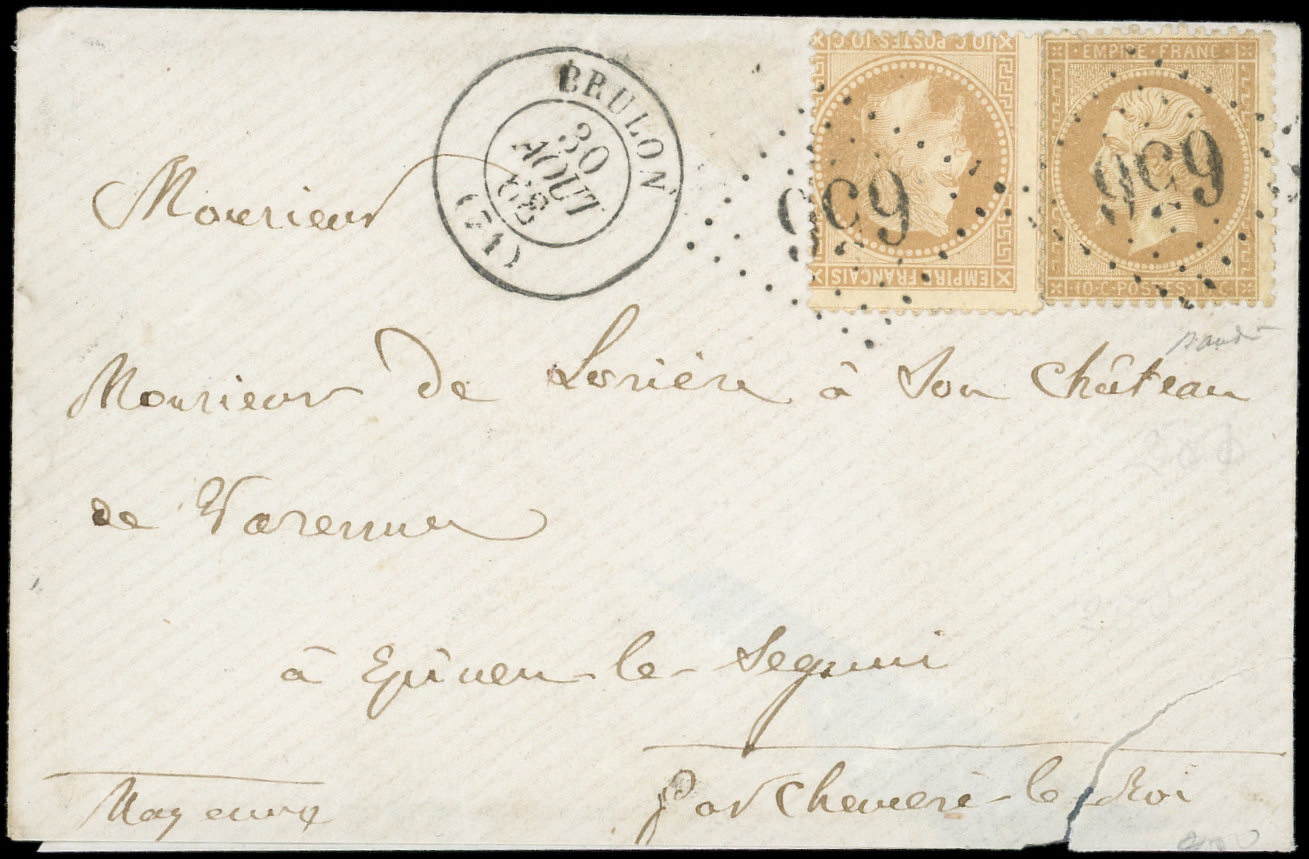 BRULON
30
AOUT
68
(71)
10.C.POSTES.10.C
EMPIRE FRANÇAIS
EMPIRE FRANC
10.C.POSTES.10.C
656
656
Monsieur
Monsieur de Lorière à Son Château
de Varennes
à Epineu-le-Seguin
par Chemeré-le Roi
Mayenne